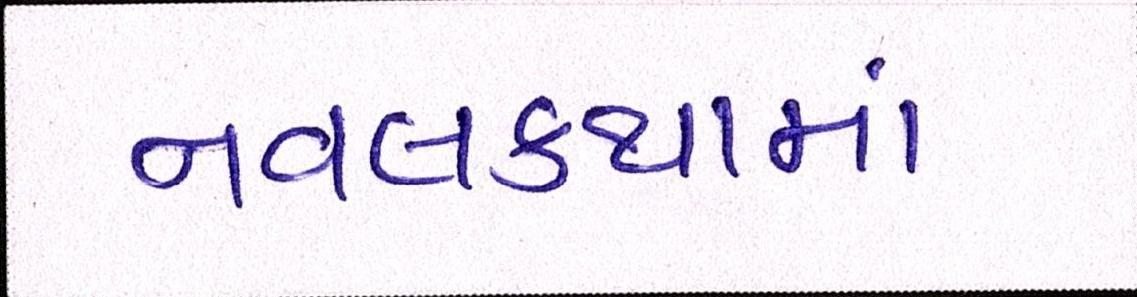 નવલકથામાં